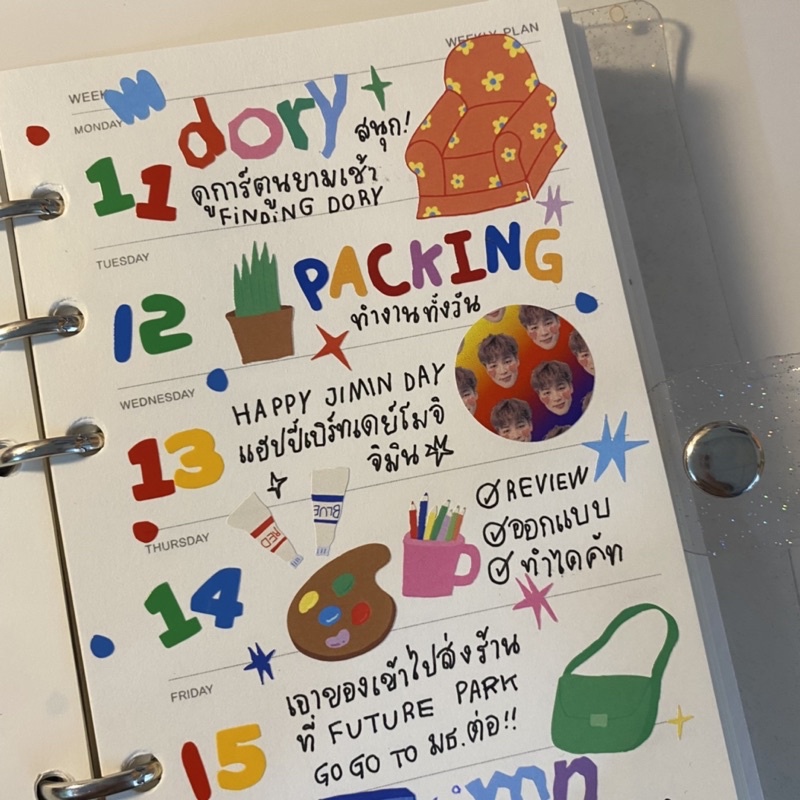 WEEKLY PLAN
WEEK
MONDAY
dory
สนุก!
11
ดูการ์ตูนยามเช้า
FINDING DORY
TUESDAY
PACKING
12
ทำงานทั้งวัน
WEDNESDAY
HAPPY JIMIN DAY
13
แฮปปี้เบิร์ทเดย์โมจิ
จิมิน
BLUE
RED
THURSDAY
REVIEW
ออกแบบ
ทำไดคัท
14
FRIDAY
เอาของเข้าไปส่งร้าน
ที่ FUTURE PARK
15
GO GO TO มธ.ต่อ!!